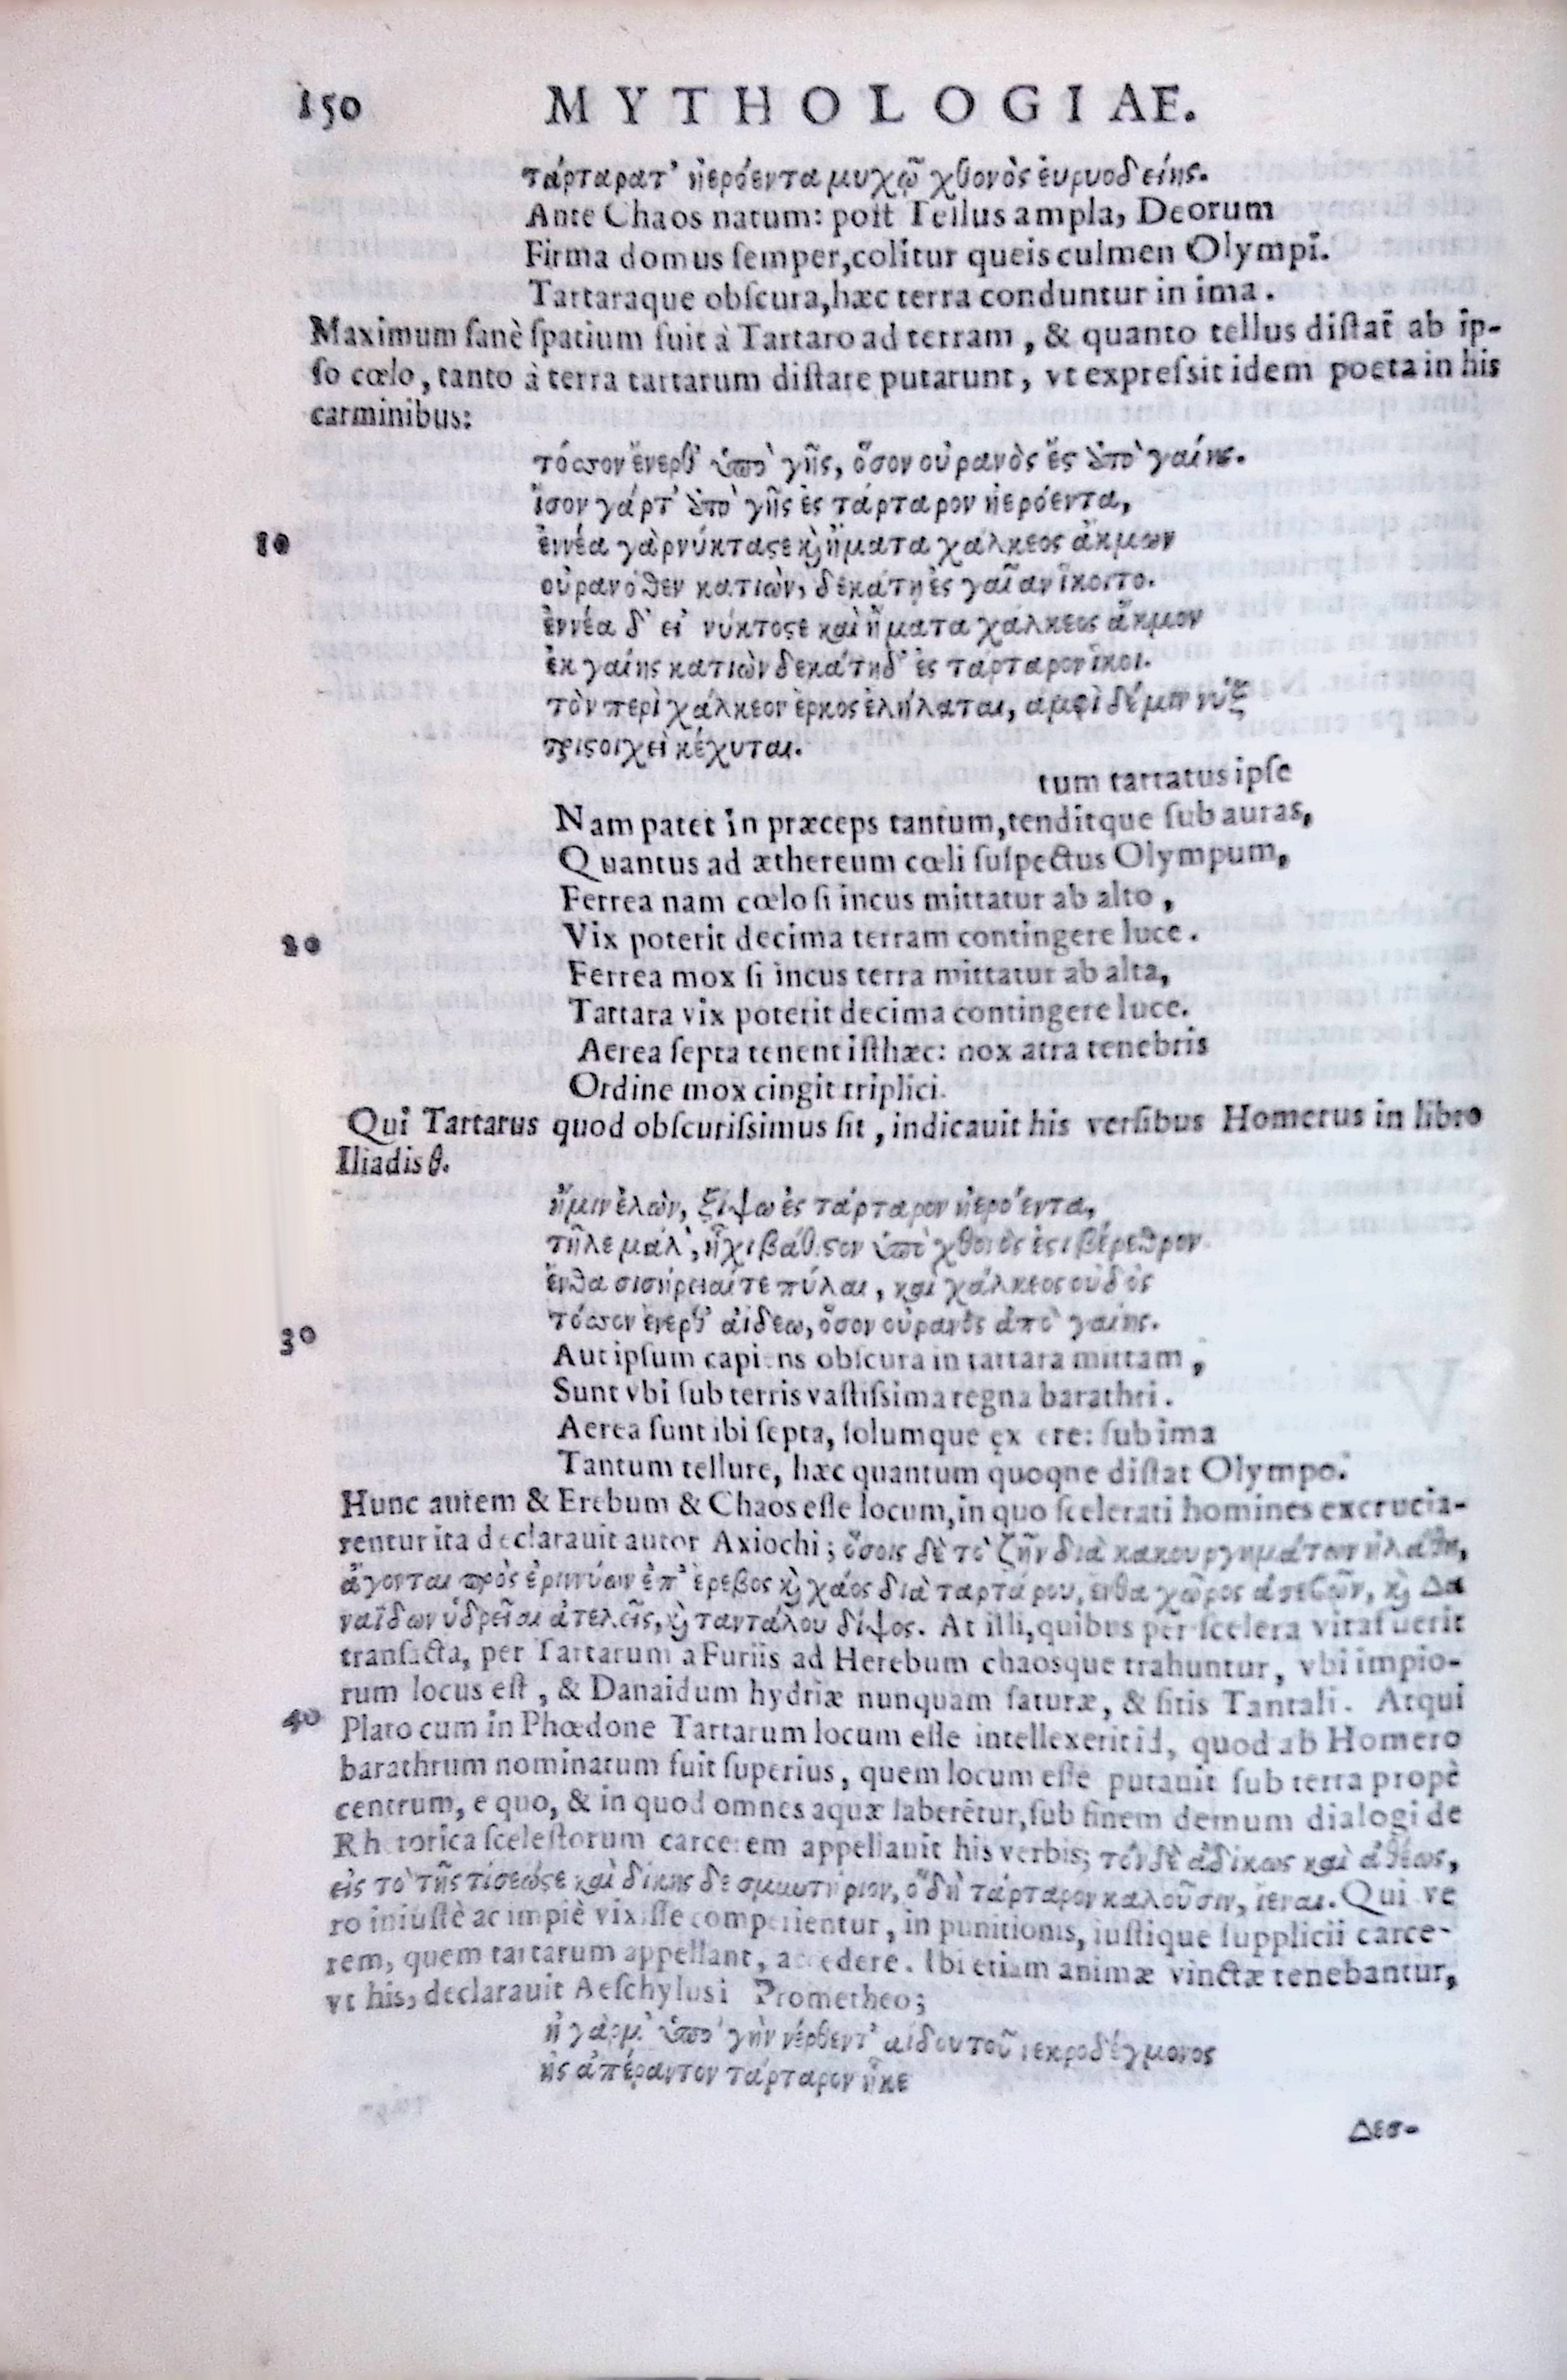 150 MYTHOLOGIAE.
τάρταρατ' ἠερόεντα μυχῷ χθονὸς ἐυρυοδείης.
Ante Chaos natum: poſt Tellus ampla, Deorum
Firma domus ſemper, colitur queis culmen Olympi.
Tartaraque obſcura, hæc terra conduntur in ima.
Maximum ſanè ſpatium fuit à Tartaro ad terram, & quanto tellus diſtat ab ip-
ſo cœlo, tanto à terra tartarum diſtare putarunt, vt expreſsit idem poeta in his
carminibus:
τόσσον ἔνερθ' ὑπὸ γῆς, ὅσον οὐρανὸς ἔς ὑπὸ γαίης.
ἴσον γάρτ' ὑπὸ γῆς ἐς τάρταρον ἠερόεντα,
10 ἐννέα γὰρ νύκταςε καὶ ἤματα χάλκεος ἄκμων
οὐρανόθεν κατιὼν, δεκάτῃ ἐς γαῖαν ἵκοιτο.
ἐννέα δ' εἰ νύκτοςε καὶ ἤματα χάλκεος ἄκμον
ἐκ γαίης κατιὼν δεκάτηδ' ἐς τάρταρον ἵκοι.
τὸν περὶ χάλκεον ἑρκος ἐλήλαται, ἀμφὶ δέ μιν νύξ
τριςοιχεὶ κέχυται.
tum tartatus ipſe
Nam patet in præceps tantum, tenditque ſub auras,
Quantus ad æthereum cœli ſuſpectus Olympum,
Ferrea nam cœlo ſi incus mittatur ab alto,
20 Vix poterit decima terram contingere luce.
Ferrea mox ſi incus terra mittatur ab alta,
Tartara vix poterit decima contingere luce.
Aerea ſepta tenent iſthæc: nox atra tenebris
Ordine mox cingit triplici.
Qui Tartarus quod obſcuriſsimus ſit, indicauit his verſibus Homerus in libro
Iliadis θ.
ἤ μιν ἑλὼν, ῥίψω ἐς τάρταρον ἠερόεντα,
τῆλε μάλ', ἧχι βάθιςον ὑπὸ χθονὸς ἐςι βέρεθρον.
ἔνθα σισήρειαίτε πύλαι, καὶ χάλκεος οὐδὸς
30 τόσσον ἐνερθ' ἀΐδεω, ὅσον οὐρανὸς ἀπὸ γαίης.
Aut ipſum capiens obſcura in tartara mittam,
Sunt vbi ſub terris vaſtiſsima regna barathri.
Aerea ſunt ibi ſepta, ſolumque ęx ere: ſub ima
Tantum tellure, hæc quantum quoqne diſtat Olympo.
Hunc autem & Erebum & Chaos eſſe locum, in quo ſcelerati homines excrucia-
rentur ita declarauit autor Axiochi; ὅσοις δὲ τὸ ζῆν διὰ κακουργημάτων ἠλάθη,
ἄγονται πρὸς ἐριννύων ἐπ' ἐρεβος καὶ χάος διὰ ταρτάρου, ἐνθα χῶρος ἀσεβῶν, καὶ Δα
ναΐδων ὑδρεῖαι ἀτελεῖς, καὶ ταντάλου δίψος. At illi, quibus per ſcelera vita fuerit
tranſacta, per Tartarum a Furiis ad Herebum chaosque trahuntur, vbi impio-
rum locus eſt, & Danaidum hydriæ nunquam ſaturæ, & ſitis Tantali. Atqui
40 Plato cum in Phœdone Tartarum locum eſſe intellexerit id, quod ab Homero
barathrum nominatum fuit ſuperius, quem locum eſſe putauit ſub terra propè
centrum, e quo, & in quod omnes aquæ laberētur, ſub finem demum dialogi de
Rhetorica ſceleſtorum carcerem appellauit his verbis; τόνδὲ ἀδίκως καὶ ἀθέως,
εἰς τὸ τῆς τίσεώςε καὶ δίκης δεσμωτήριον, ὃ δὴ τάρταρον καλοῦσιν, ἰέναι. Qui ve
ro iniuſtè ac impiè vixiſſe comperientur, in punitionis, iuſtique ſupplicii carce-
rem, quem tartarum appellant, accedere. Ibi etiam animæ vinctæ tenebantur,
vt his, declarauit Aeſchylus i Prometheo;
ἠ γάρ μ' ὑπὸ γὴν νέρθεντ' αίδου τοῦ νεκροδέγμονος
ἠς ἀπέραντον τάρταρον ἧκε
Δεσ-